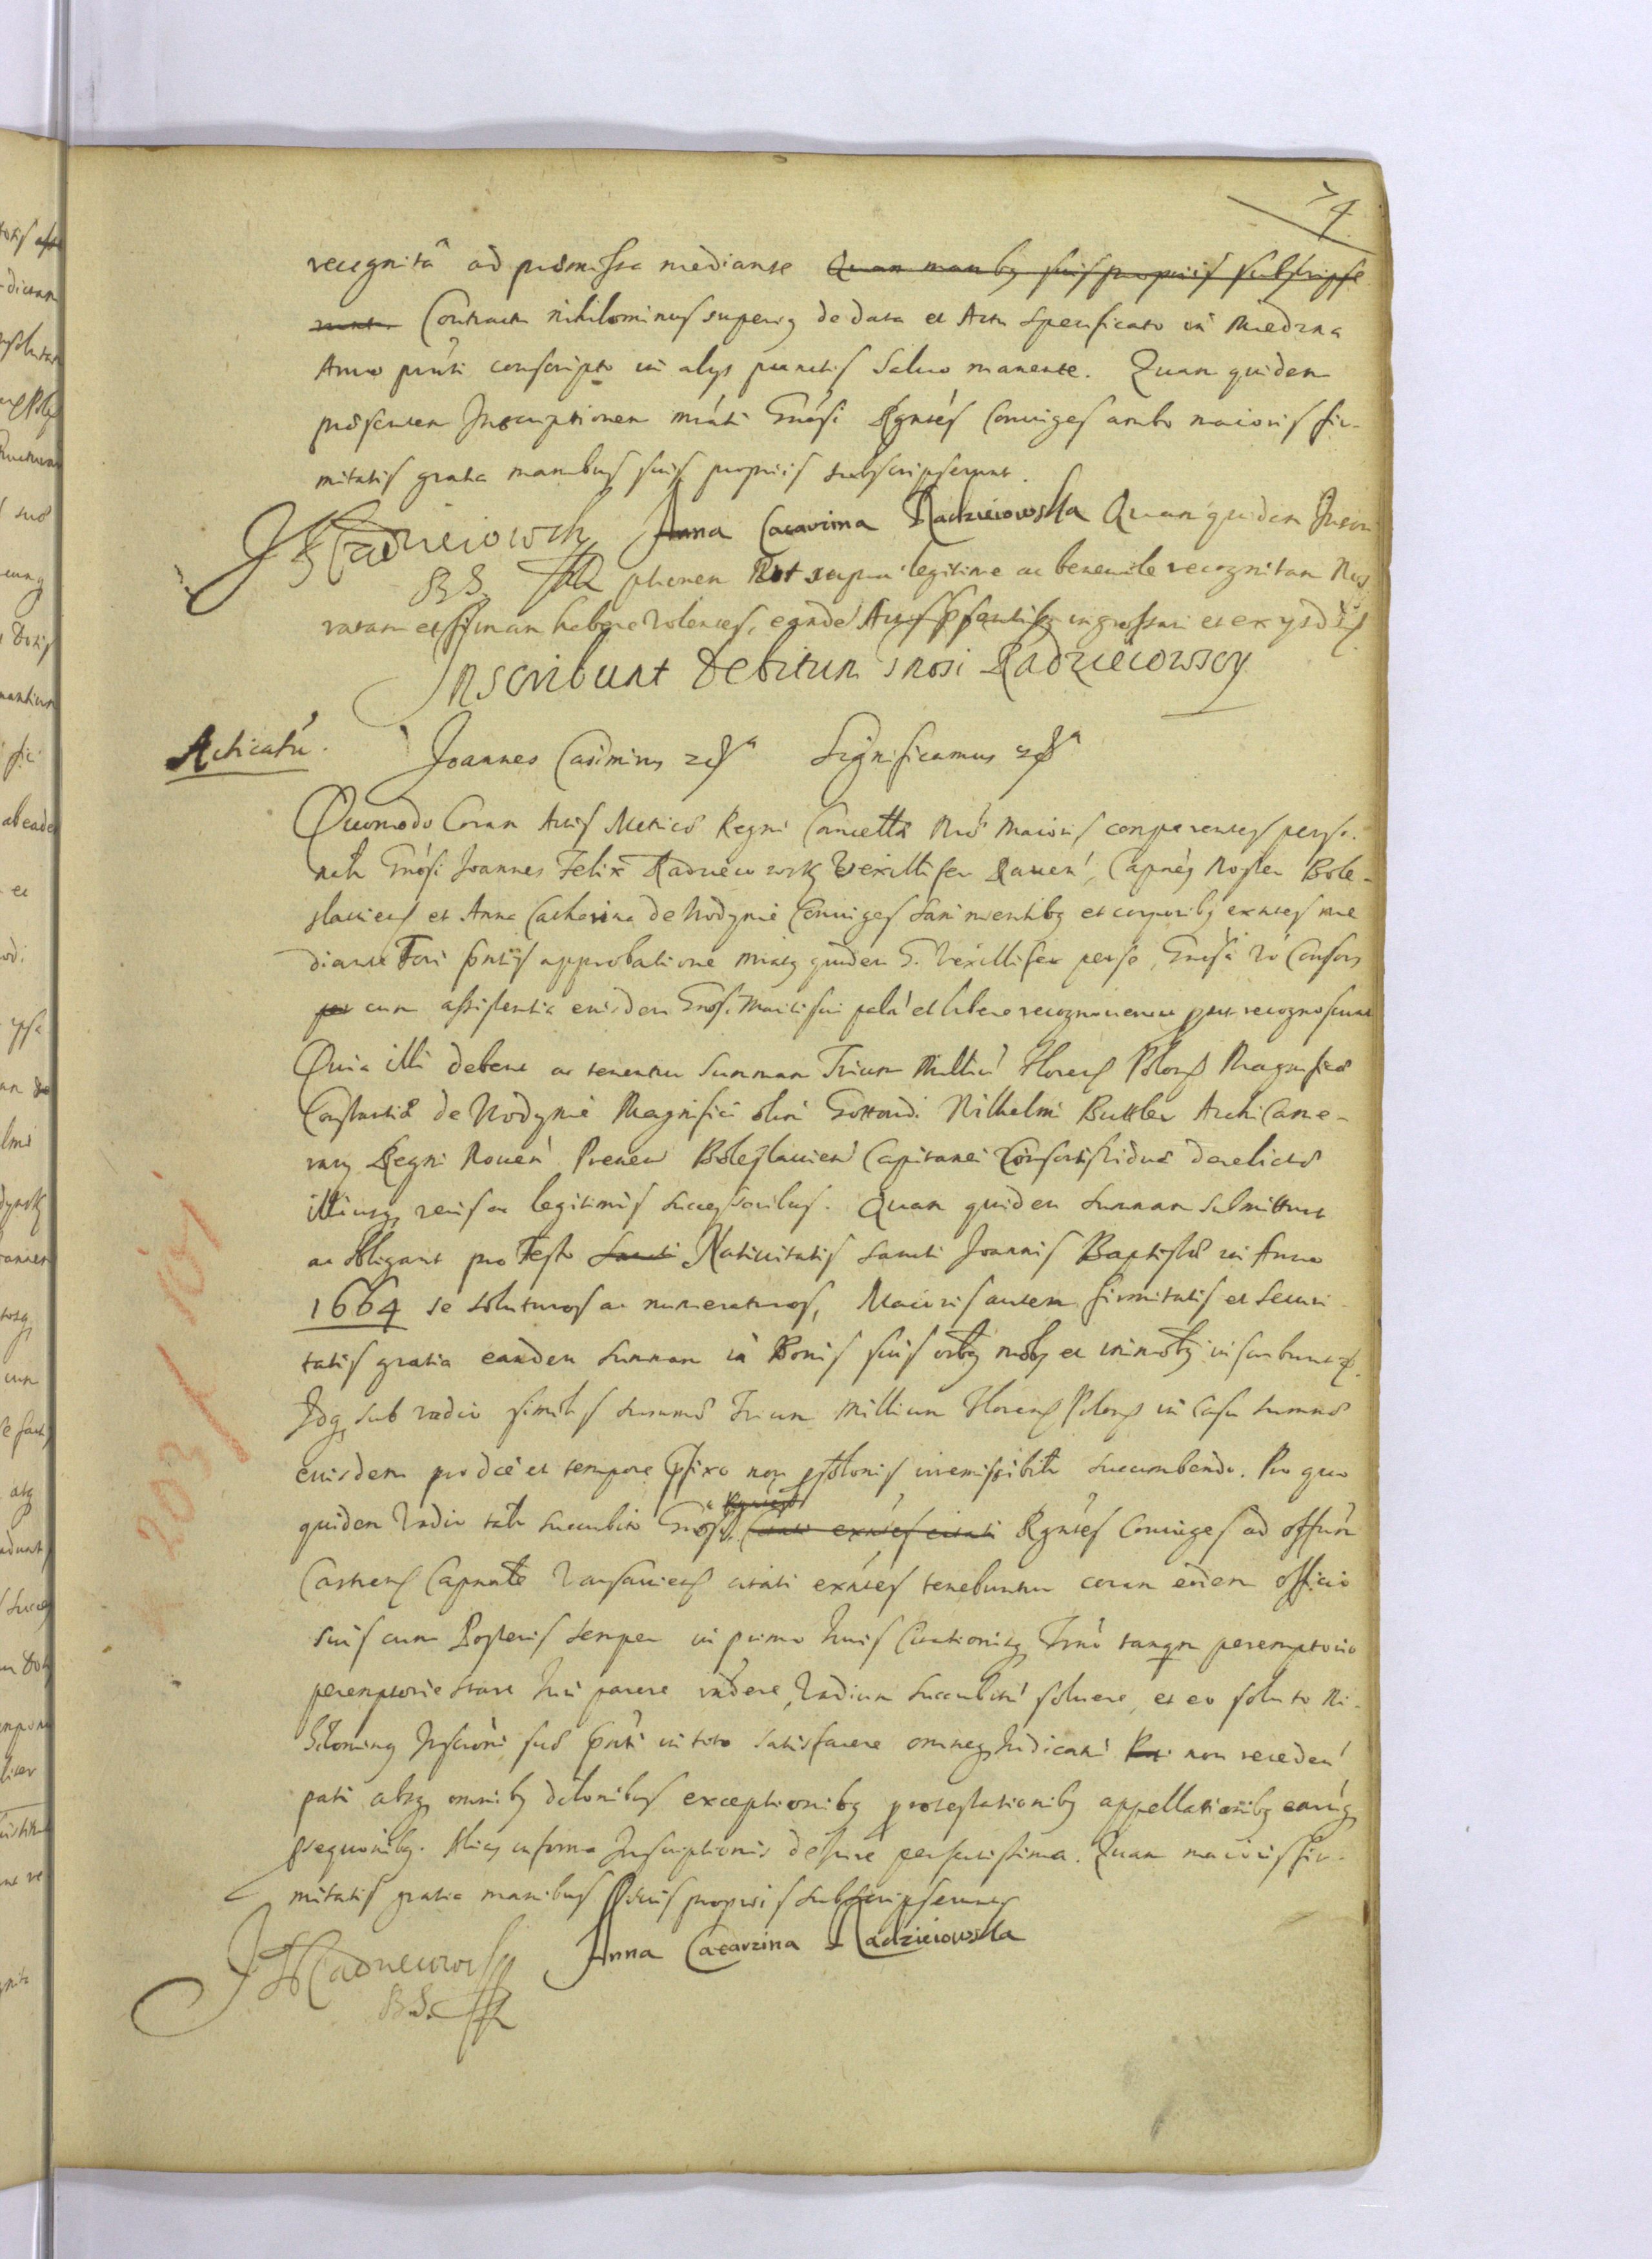 74
recognitâ ad præmissa mediante Quam manibq suis proprijs subscripse
runt. Contractu nihilominus superq de data et Actu specificato in
Anno pnti conscripto in alys punctis salvo manente. Quam quidem
præsentem Inscriptionem Gnosi Rgntes Coniuges ambo maioris fir-
mitatis gratia manibus suis proprijs subscripserunt.
Anna Catarina Radzieiowska Quam quidem Inscri
ptionem ut supra legitime ac benevole recognitam Nos
ratam et firmam habere volentes, eande Actis pposentibq ingrossari et ex ysd
Inscribunt Debitum Gnosi Radzieiowscy
Acticatu.
Joannes Casimirus Significamus
Quomodo Coram Actis Metrices Regni Cancella Nræ Maioris comparentes perso-
nalr Gnosi Joannes Felix Radzieiowsky Vexillifer Raven, Capneq Noster Bole-
slaviens et Anna Catharina de Wodynie Coniuges sani mentibq et corporibq exntes me
diante Fori pntis approbatione quidem G. Vexillifer per se, Gnosa vo Consors
per cum assistentia eiusdem Gnosi Mariti sui pala et libere recognoverunt prout recognoscunt
Quia illi debent ac tenentur summam Trium Milliu Florens Polons Magnificæ
Constantiæ de Wodynie Magnifici olim Gottardi Wilhelmi Buttler Archicame-
rarij Regni Noven Preneu Boleslavien Capitanei Consortis viduæ derelictæ
illiusq veris ac legitimis successoribus. Quam quidem summam submittunt
ac obligant pro Festo Sancti Nativitatis Sancti Joannis Baptistæ in Anno
1664 se soluturos ac numeraturos, Maioris autem firmitatis et securi-
tatis gratia eandem summam in Bonis suis oibq mobq et immobq inscribunt.
Idq sub vadio similis summæ Trium Millium Florens Polons in casu summæ
eiusdem pro die et tempore pfixo non psolonis irremissibilr succumbendo. Pro quo
quidem Vadio talr succubito Gnosi Rgntes Coniuges ad offum
Castrens Capnale Varsaviens citati exntes tenebuntur coram eodem officio
suis cum Posteris semper in primo huius Citationisq Trno tanqm peremptorio
peremptorie stare Juri parere rndere, Vadium succubitu solvere, et eo soluto Ni-
hilominq Inscrioni suæ pnti in toto satisfacere omneq Iudicatu non receden
pati absq omnibq dilonibus exceptionibq protestationibq appellationibq earuq
psequonibq. Alias in forma Inscriptionis de Iure perfectissima. Quam maioris fir-
mitatis gratia manibus suis proprijs subscripserunt
Anna Catarzina Radzieiowska